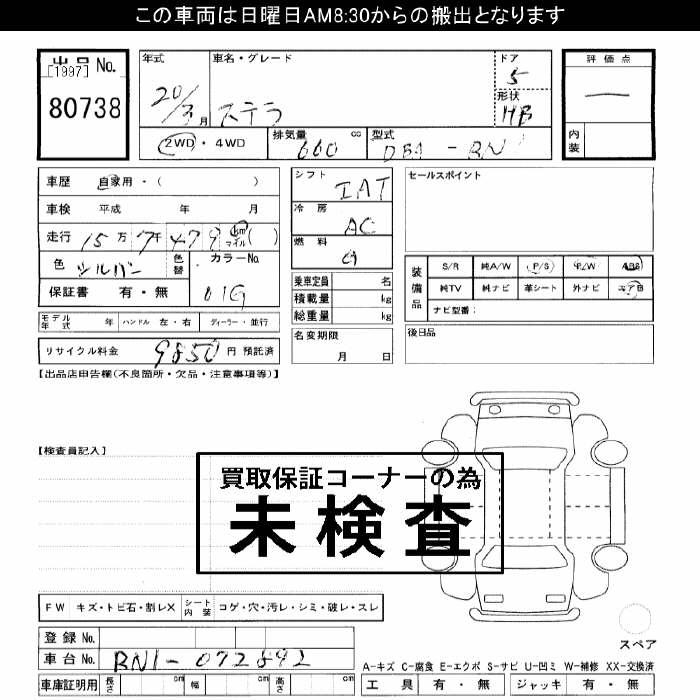 この車両は日曜日AM8:30からの搬出となります
出品 No.
[1997]
80738
年式
20/3月
車名・グレード
ステラ
ドア
5
形状
HB
評価点
内装
2WD・4WD
排気量 660 cc
型式 DBA - RN1
車歴 自家用・( )
車検 平成 年 月
走行 15万7千479 km マイル ( )
色 シルバー
色替
カラーNo.
01G
保証書 有・無
モデル年式 年 ハンドル 左・右 ディーラー・並行
リサイクル料金 9850 円 預託済
シフト IAT
冷房 AC
燃料 G
乗車定員 名
積載量 kg
総重量 kg
名変期限
月 日
セールスポイント
装備品
S/R 純A/W P/S P/W ABS
純TV 純ナビ 革シート 外ナビ エアB
ナビ型番:
後日品
【出品店申告欄(不良箇所・欠品・注意事項等)】
【検査員記入】
買取保証コーナーの為
未検査
FW キズ・トビ石・割レX シート内装 コゲ・穴・汚レ・シミ・破レ・スレ
登録 No.
車台 No. RN1-072892
車庫証明用 長さ cm 幅 cm 高さ cm
スペア
A-キズ C-腐食 E-エクボ S-サビ U-凹ミ W-補修 XX-交換済
工具 有・無 ジャッキ 有・無